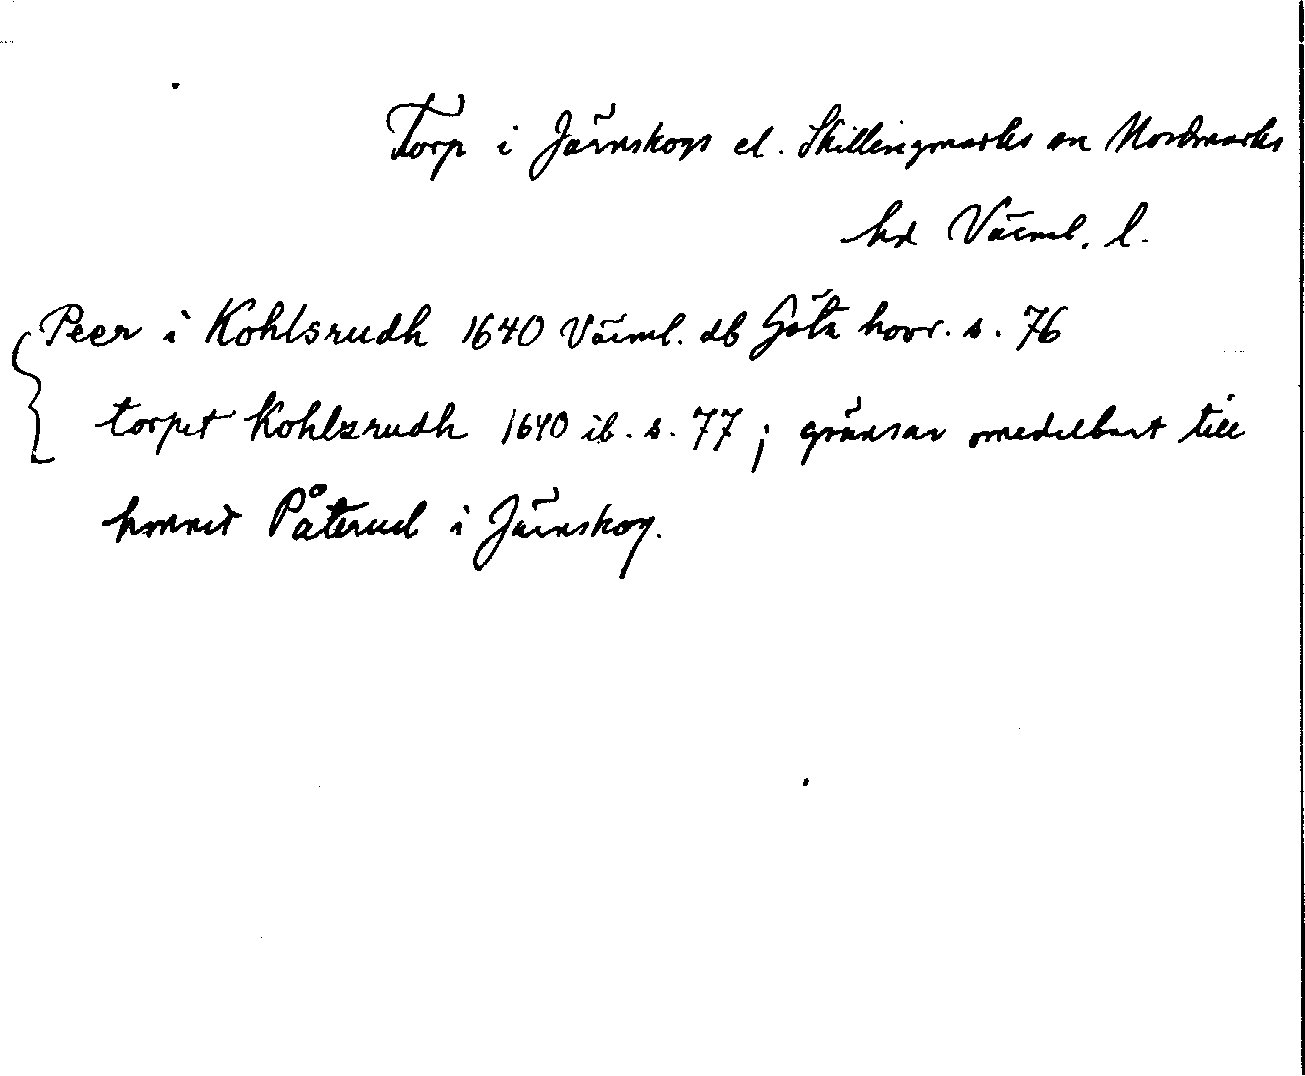 Torp i Järnskogs el. Skillingmarks sn Nordmarks
hd Värml. l.
Peer i Kohlsrudh 1640 Värml. db Göta hovr. s. 76
torpet Kohlzrudh 1640 ib. s. 77; gränsar omedelbart till
hmnet Påterud i Järnskog.